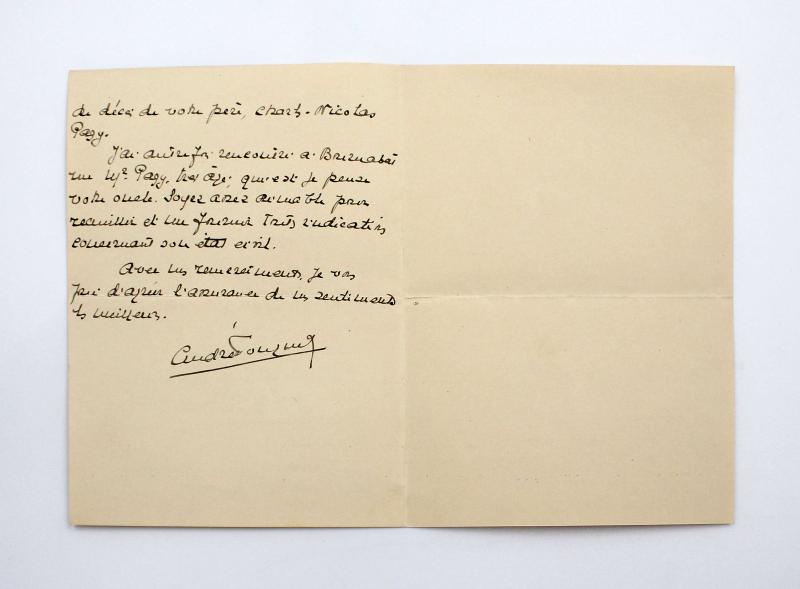 de décès de votre père, Charles-Nicolas
Pagy.
J'ai autrefois rencontré à
un Mr Pagy, très âgé, qui est je pense
votre oncle. Soyez assez aimable pour
recueillir et me fournir toutes indications
concernant son état civil.
Avec mes remerciements, je vous
prie d'agréer l'assurance de mes sentiments
les meilleurs.
André